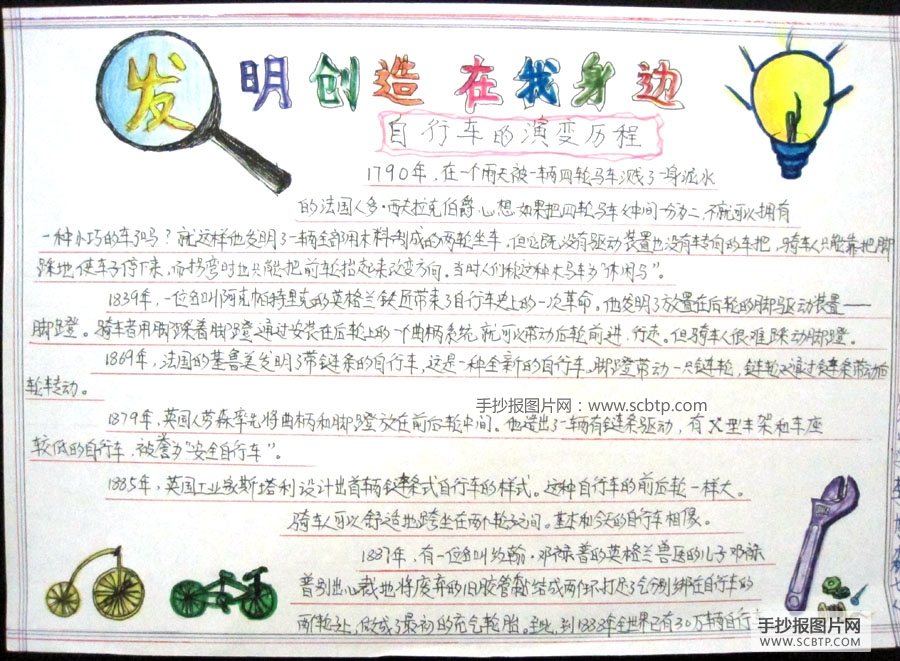 发明创造在我身边
自行车的演变历程
1790年，在一个雨天被一辆四轮马车溅了一身泥水
的法国人多·西夫拉克伯爵心想如果把四轮马车从中间一分为二，不就可以拥有
一种小巧的车了吗？就这样他发明了一辆全部用木料制成的两轮坐车，但它既没有驱动装置也没有转向的车把，骑车人只能靠把脚
踩地使车子停下来，而拐弯时也只能把前轮抬起来改变方向。当时人们称这种木马车为“休闲马”。
1839年，一位名叫阿克帕特里克的英格兰铁匠带来了自行车史上的一次革命。他发明了放置在后轮的脚驱动装置——
脚蹬。骑车者用脚踩着脚蹬通过安装在后轮上的一个曲柄系统，就可以带动后轮前进，行走。但骑车人很难踩动脚蹬。
1869年，法国的基鲁美发明了带链条的自行车，这是一种全新的自行车。脚蹬带动一只链轮，链轮又通过链条带动后
轮转动。
手抄报图片网：www.scbtp.com
1879年，英国人劳森率先将曲柄和脚蹬放在前后轮中间。他造出了一辆有链条驱动，有X型车架和车座
较低的自行车，被誉为“安全自行车”。
1885年，英国工业家斯塔利设计出首辆链条式自行车的样式。这种自行车的前后轮一样大。
骑车人可以舒适地跨坐在两个轮之间。基本和今天的自行车相像。
1887年，有一位名叫约翰·邓禄普的英格兰兽医的儿子邓禄
普别出心裁地将废弃的旧胶管黏结成两个环打足了气分别绑在自行车的
两个轮上，做成了最初的充气轮胎。至此，到1888年全世界已有30万辆自行
手抄报图片网
WWW.SCBTP.COM